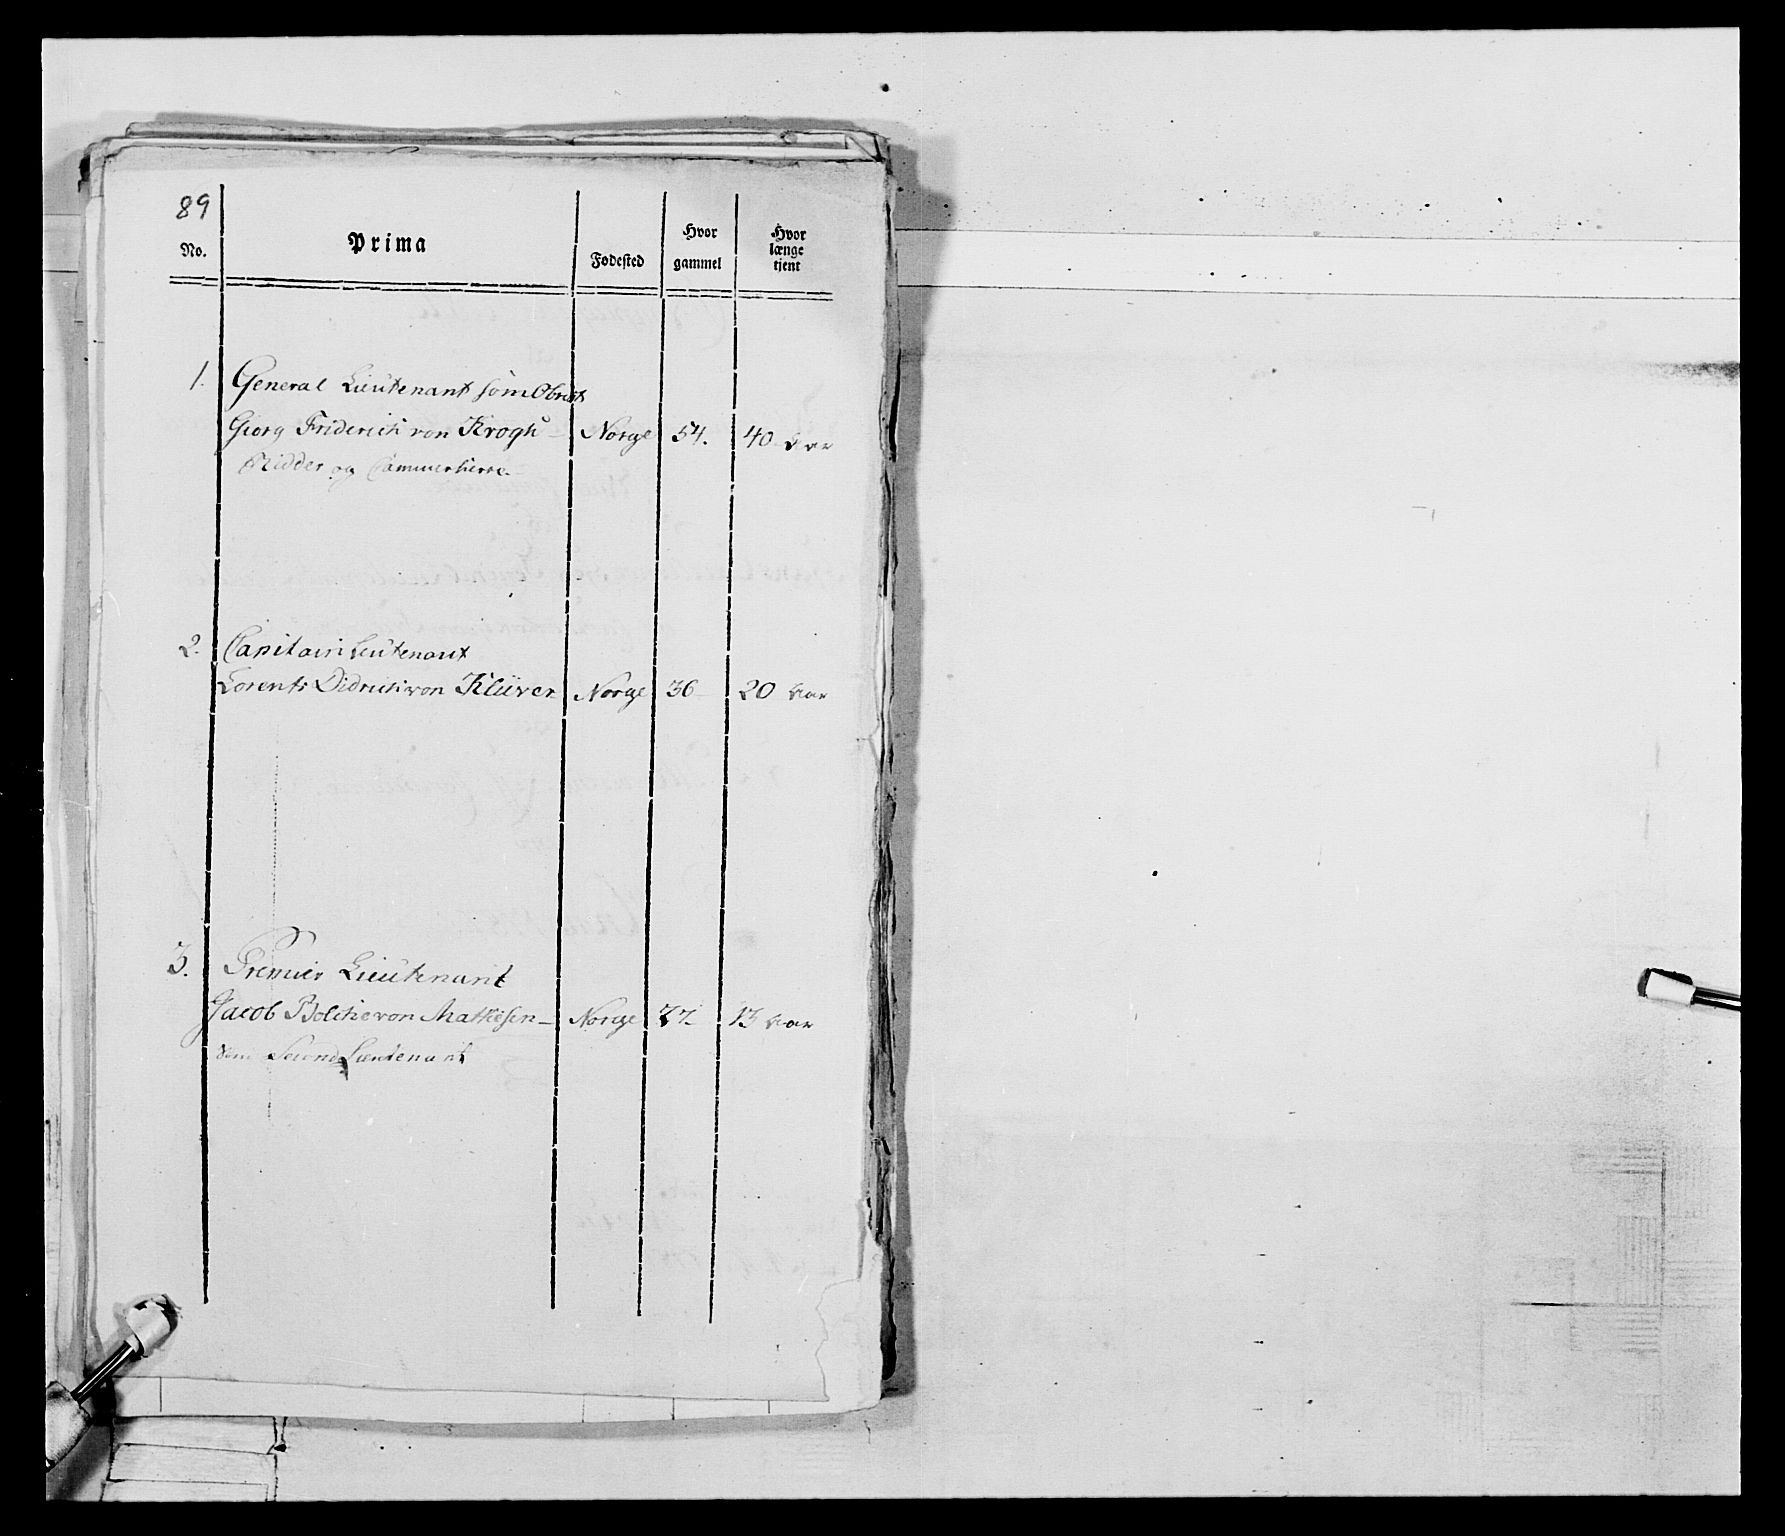 89
No. Prima Fødested Hvor gammel Hvor længe tjent
1. General Lieutenant som Obrist
Georg Friderich von Krogh – Norge 54. 40 Aar
Ridder og Cammerherre.
2. Capitain Leutenant
Lorents Didrich von Klüver Norge 36 20 Aar
3. Premier Lieutenant
Jacob Bolchevon Mathesen – Norge 27. 13 Aar
som Second Lieutenant